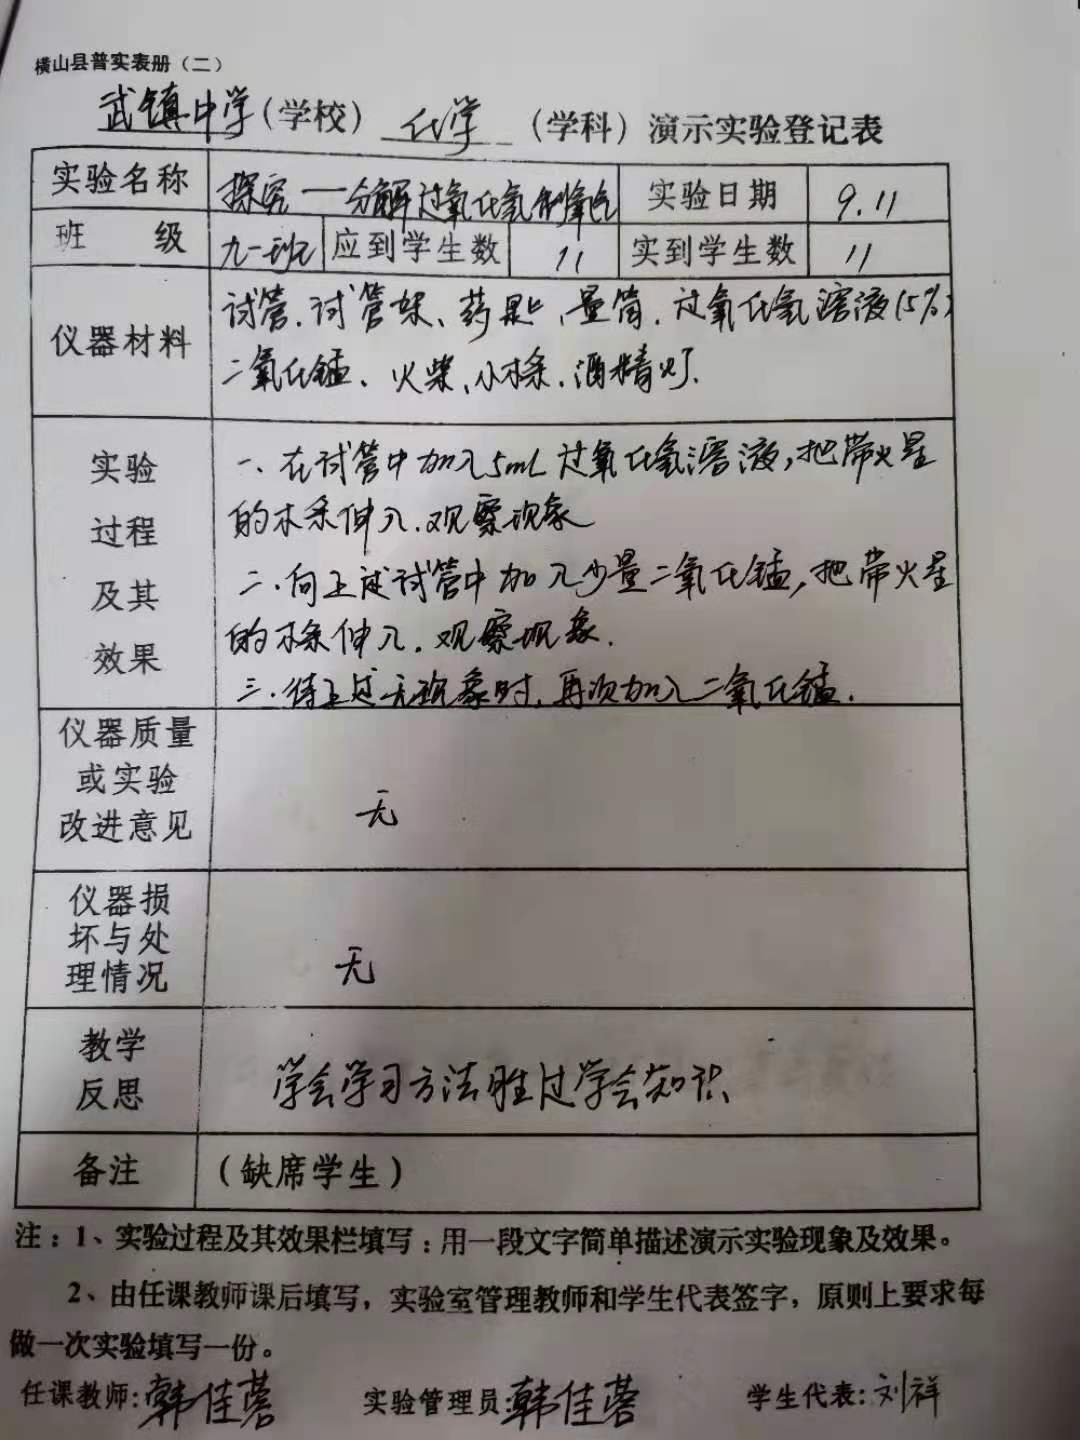 横山县普实表册（二）
武镇中学（学校）化学（学科）演示实验登记表
实验名称 探究一分解过氧化氢制氧气 实验日期 9.11
班级 九一班 应到学生数 11 实到学生数 11
仪器材料
试管、试管架、药匙、量筒、过氧化氢溶液(5%)
二氧化锰、火柴、小木条、酒精灯.
实验
过程
及其
效果
一、在试管中加入5mL过氧化氢溶液,把带火星
的木条伸入.观察现象
二.向上述试管中加入少量二氧化锰,把带火星
的木条伸入.观察现象.
三.待上述无现象时,再次加入二氧化锰.
仪器质量
或实验
改进意见
无
仪器损
坏与处
理情况
无
教学
反思
学会学习方法胜过学会知识
备注 （缺席学生）
注：1、实验过程及其效果栏填写：用一段文字简单描述演示实验现象及效果。
2、由任课教师课后填写，实验室管理教师和学生代表签字，原则上要求每
做一次实验填写一份。
任课教师:韩佳蓉 实验管理员:韩佳蓉 学生代表:刘祥